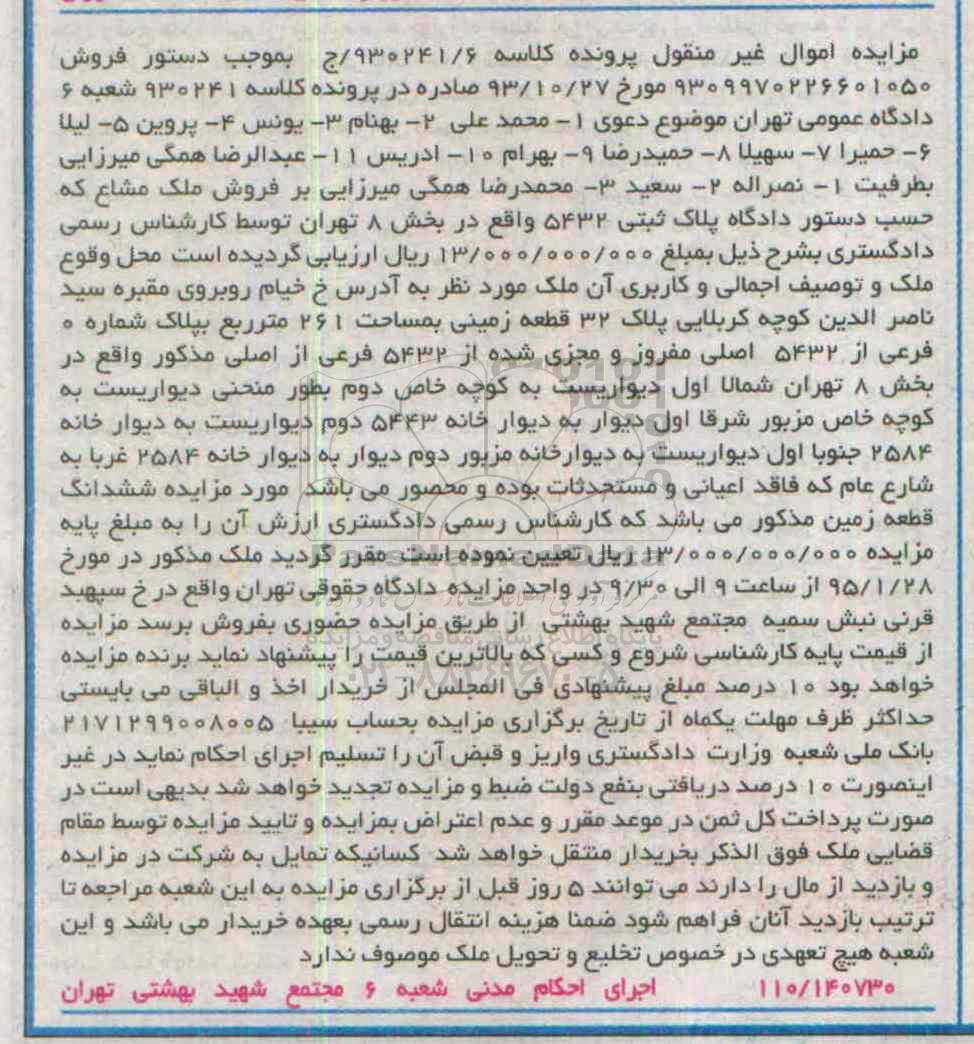 مزایده اموال غیر منقول پرونده کلاسه ۹۳۰۲۴۱/۶/ج بموجب دستور فروش
۹۳۰۹۹۷۰۲۲۶۶۰۱۰۵۰ مورخ ۹۳/۱۰/۲۷ صادره در پرونده کلاسه ۹۳۰۲۴۱ شعبه ۶
دادگاه عمومی تهران موضوع دعوی ۱- محمد علی ۲- بهنام ۳- یونس ۴- پروین ۵- لیلا
۶- حمیرا ۷- سهیلا ۸- حمیدرضا ۹- بهرام ۱۰- ادریس ۱۱- عبدالرضا همگی میرزایی
بطرفیت ۱- نصراله ۲- سعید ۳- محمدرضا همگی میرزایی بر فروش ملک مشاع که
حسب دستور دادگاه پلاک ثبتی ۵۴۳۲ واقع در بخش ۸ تهران توسط کارشناس رسمی
دادگستری بشرح ذیل بمبلغ ۱۳/۰۰۰/۰۰۰/۰۰۰ ریال ارزیابی گردیده است محل وقوع
ملک و توصیف اجمالی و کاربری آن ملک مورد نظر به آدرس خ خیام روبروی مقبره سید
ناصر الدین کوچه کربلایی پلاک ۳۲ قطعه زمینی بمساحت ۲۶۱ مترربع بپلاک شماره ۰
فرعی از ۵۴۳۲ اصلی مفروز و مجزی شده از ۵۴۳۲ فرعی از اصلی مذکور واقع در
بخش ۸ تهران شمالا اول دیواریست به کوچه خاص دوم بطور منحنی دیواریست به
کوچه خاص مزبور شرقا اول دیوار به دیوار خانه ۵۴۴۳ دوم دیواریست به دیوار خانه
۲۵۸۴ جنوبا اول دیواریست به دیوارخانه مزبور دوم دیوار به دیوار خانه ۲۵۸۴ غربا به
شارع عام که فاقد اعیانی و مستحدثات بوده و محصور می باشد مورد مزایده ششدانگ
قطعه زمین مذکور می باشد که کارشناس رسمی دادگستری ارزش آن را به مبلغ پایه
مزایده ۱۳/۰۰۰/۰۰۰/۰۰۰ ریال تعیین نموده است مقرر گردید ملک مذکور در مورخ
۹۵/۱/۲۸ از ساعت ۹ الی ۹/۳۰ در واحد مزایده دادگاه حقوقی تهران واقع در خ سپهبد
قرنی نبش سمیه مجتمع شهید بهشتی از طریق مزایده حضوری بفروش برسد مزایده
از قیمت پایه کارشناسی شروع و کسی که بالاترین قیمت را پیشنهاد نماید برنده مزایده
خواهد بود ۱۰ درصد مبلغ پیشنهادی فی المجلس از خریدار اخذ و الباقی می بایستی
حداکثر ظرف مهلت یکماه از تاریخ برگزاری مزایده بحساب سیبا ۲۱۷۱۲۹۹۰۰۸۰۰۵
بانک ملی شعبه وزارت دادگستری واریز و قبض آن را تسلیم اجرای احکام نماید در غیر
اینصورت ۱۰ درصد دریافتی بنفع دولت ضبط و مزایده تجدید خواهد شد بدیهی است در
صورت پرداخت کل ثمن در موعد مقرر و عدم اعتراض بمزایده و تایید مزایده توسط مقام
قضایی ملک فوق الذکر بخریدار منتقل خواهد شد کسانیکه تمایل به شرکت در مزایده
و بازدید از مال را دارند می توانند ۵ روز قبل از برگزاری مزایده به این شعبه مراجعه تا
ترتیب بازدید آنان فراهم شود ضمنا هزینه انتقال رسمی بعهده خریدار می باشد و این
شعبه هیچ تعهدی در خصوص تخلیع و تحویل ملک موصوف ندارد
۱۱۰/۱۴۰۷۳۰ اجرای احکام مدنی شعبه ۶ مجتمع شهید بهشتی تهران